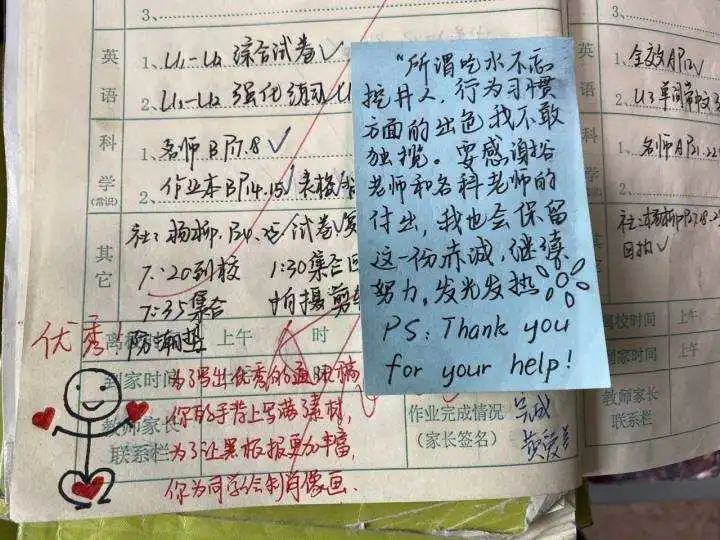 3、
3、
英语
1、U1-U2 综合试卷✓
2、U1-U2 强化练习 U
科学(常识)
1、名师BP7.8✓
2、作业本BP14.15✓ 表格
其它
社：杨柳
试卷
7:20到校 1:30集合
7:35集合 拍摄剪
防潮垫
上午 时
到家时间
教师家长联系栏
作业完成情况(家长签名)
完成
优秀
为了写出优秀的通讯稿,
你的手背上写满了素材,
为了让黑板报更加丰富,
你为同学绘制肖像画.
“所谓吃水不忘
挖井人，行为习惯
方面的出色我不敢
独揽。要感谢谷
老师和各科老师的
付出，我也会保留
这一份赤诚，继续
努力，发光发热
PS: Thank you
for your help!
1、全效AP12✓
2、U3 单词中文
1、名师AP21.22
回执✓
离校时间 上午
到家时间
教师家长联系栏